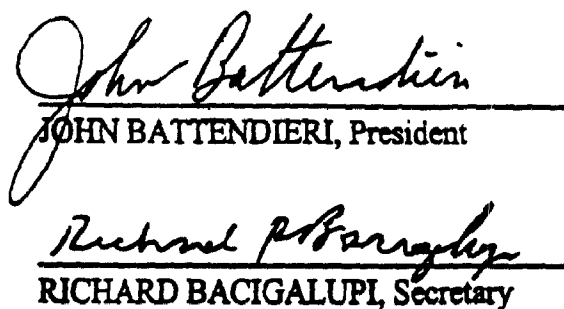 John Battendieri
JOHN BATTENDIERI, President
Richard P Bacigalupi
RICHARD BACIGALUPI, Secretary